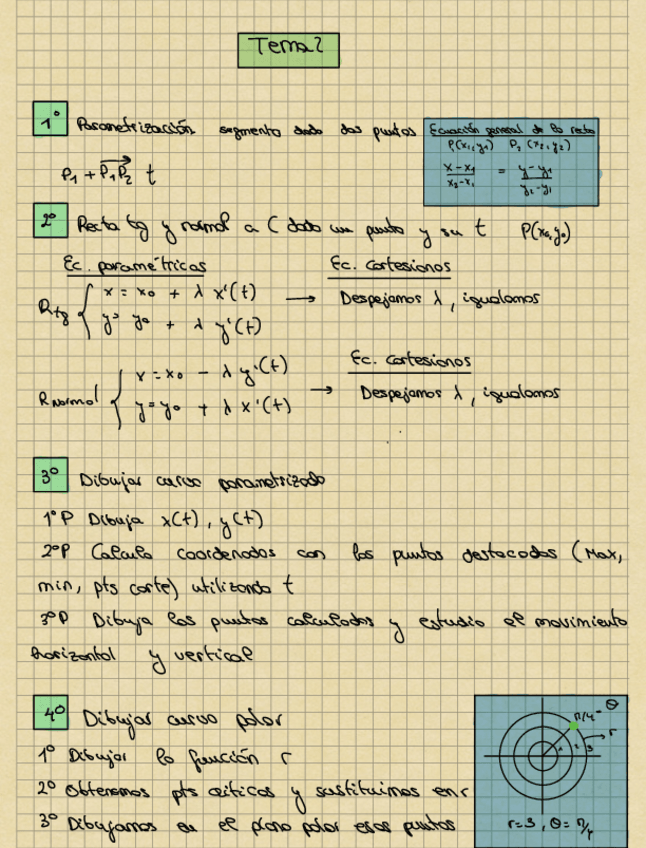 Tema 2
1º Parametrización segmento dado dos puntos
P₁ + P₁P₂ t
Ecuación general de la recta
P(x₁,y₁) P₂(x₂,y₂)
x-x₁/x₂-x₁ = y-y₁/y₂-y₁
2º Recta tg y normal a C dado un punto y su t P(x₀,y₀)
Ec. paramétricas
Rtg { x = x₀ + λ x'(t)
y = y₀ + λ y'(t)
→
Ec. cartesianas
Despejamos λ, igualamos
RNormal { x = x₀ - λ y'(t)
y = y₀ + λ x'(t)
→
Ec. cartesianas
Despejamos λ, igualamos
3º Dibujar curva parametrizada
1ºP Dibuja x(t), y(t)
2ºP Calcula coordenadas con los puntos destacados (Max,
min, pts corte) utilizando t
3ºP Dibuja los puntos calculados y estudia el movimiento
horizontal y vertical
4º Dibujar curva polar
1º Dibujar la función r
2º Obtenemos pts críticos y sustituimos en r
3º Dibujamos en el plano polar esos puntos
π/4 = θ
r
1 2 3
r=3, θ=π/4